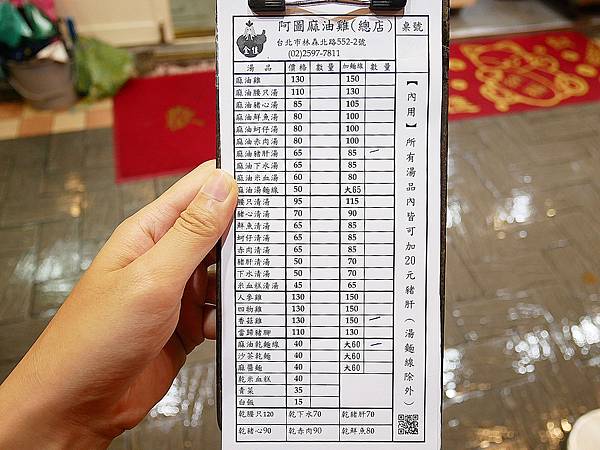 金佳
阿圖麻油雞(總店) 桌號
台北市林森北路552-2號
(02)2597-7811
湯品 價格 數量 加麵線 數量
麻油雞 130 150
麻油腰只湯 110 130
麻油豬心湯 85 105
麻油鮮魚湯 80 100
麻油蚵仔湯 80 100
麻油赤肉湯 80 100
麻油豬肝湯 65 85
麻油下水湯 65 85
麻油米血湯 60 80
麻油湯麵線 50 大65
腰只清湯 95 115
豬心清湯 70 90
鮮魚清湯 65 85
蚵仔清湯 65 85
赤肉清湯 65 85
豬肝清湯 50 70
下水清湯 50 70
米血糕清湯 45 65
人參雞 130 150
四物雞 130 150
香菇雞 130 150
當歸豬腳 110 130
麻油乾麵線 40 大60
沙茶乾麵 40 大60
麻醬麵 40 大60
乾米血糕 40
青菜 35
白飯 15
乾腰只120 乾下水70 乾豬肝70
乾豬心90 乾赤肉90 乾鮮魚80
【內用】所有湯品內皆可加20元豬肝(湯麵線除外)